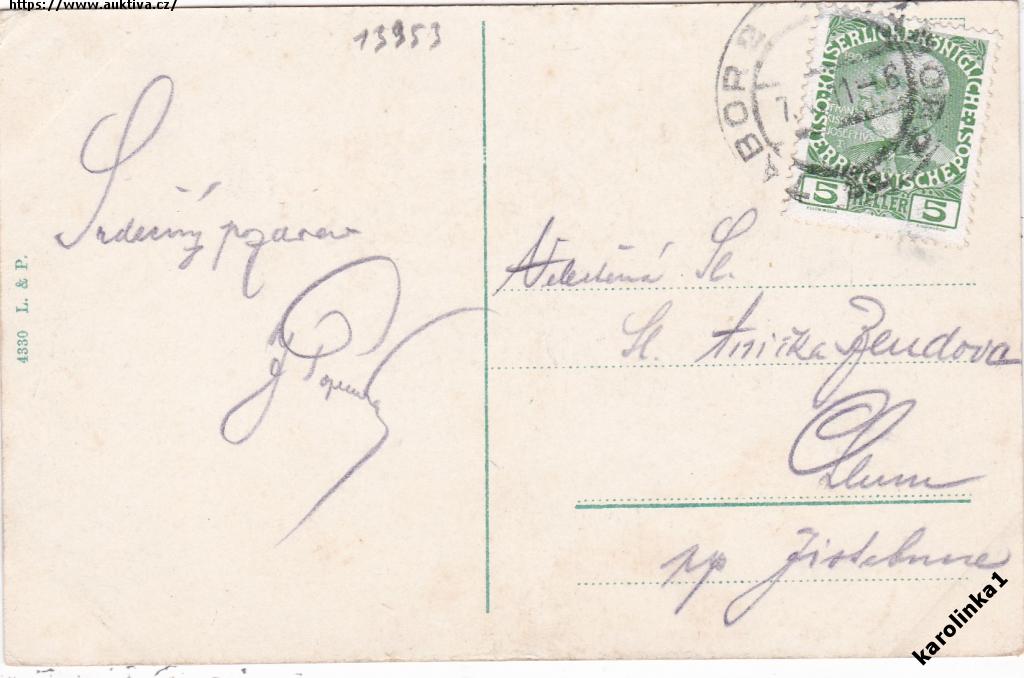 https://www.auktiva.cz/
13953
Srdečný pozdrav
4330 L. & P.
TÁBOR
KAISERLICHE KÖNIGLICHE
ÖSTERREICHISCHE POST
FRANZ
JOSEF I
5 HELLER 5
Velectěná Sl.
Sl. Anička Zeudova
Chlum
pp Jistebnice
karolinka1